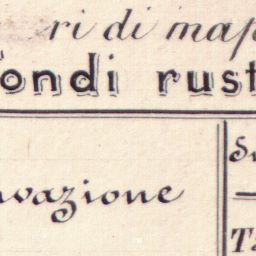 ri di map
ondi rust
vazione